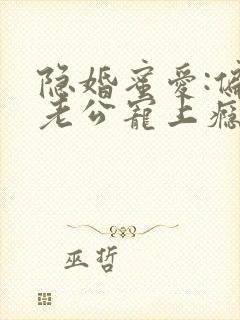 隐婚蜜爱:偏
老公宠上瘾
巫哲